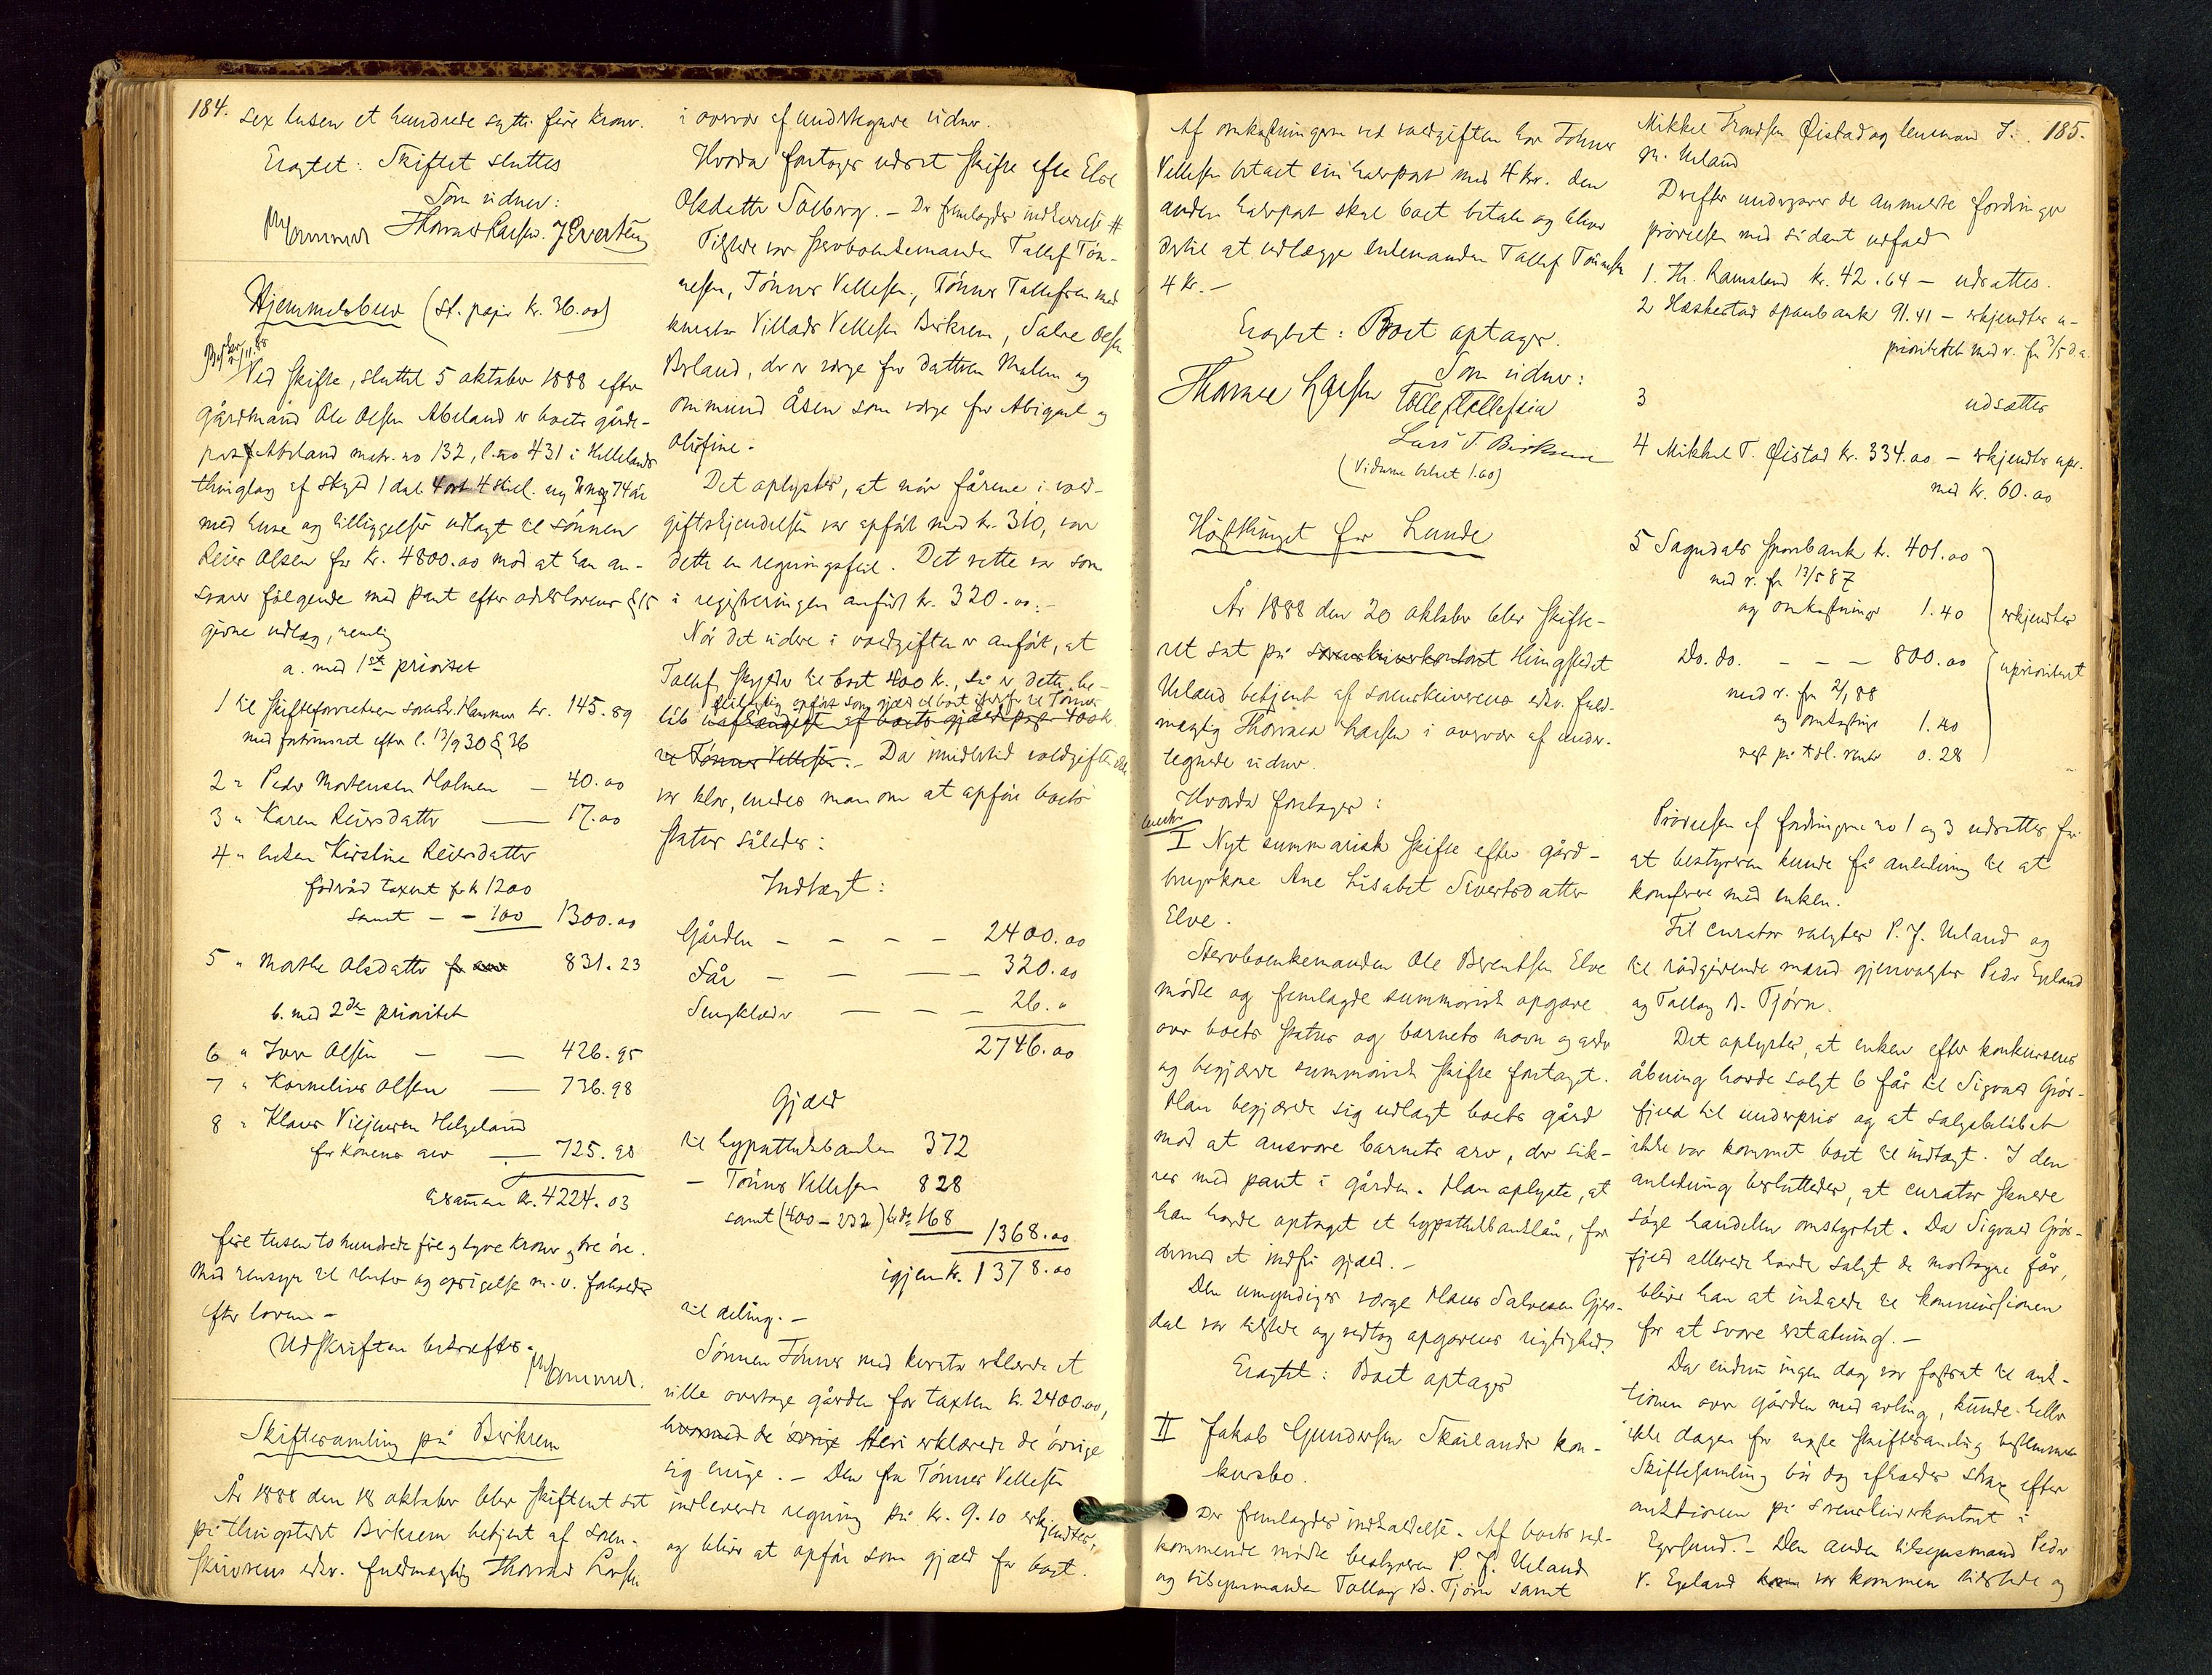 184.
sex tusen et hundrede sytti fire kroner.
Eragtet: Skiftet sluttes
Som vidner:
Hammer Thomas Larsen. J Evertsen
Hjemmelsbrev (st. papir kr. 36.00)
Ved skifte, sluttet 5 oktober 1888 efter
gårdmand Ole Olsen Åbeland er boets gårds-
part Åbeland matr. no 132, l. no 431 i Hellelands
thinglag af skyld 1 dal. 4 ort 4 skil. ny 2 mrk 74 øre
med huse og tilliggelser udlagt til sønnen
Reier Olsen for kr. 4800.00 mod at han an-
svarer følgende med pant efter odelslovens § 15
givne udlæg, nemlig
a. med 1ste prioritet
1 til skifteforvalteren sorenskr. Hammer kr. 145.89
med fortrinsret efter l. 13/9 30 § 36
2 " Peder Mortensen Holmen — 40.00
3 " Karen Reiersdatter — 17.00
4 " enken Kirstine Reiersdatter
föderåd taxeret for kr 1200
samt - - 100 1300.00
5 " Marthe Olsdatter 831.23
b. med 2den prioritet
6 " Iver Olsen — — 426.95
7 " Kornelius Olsen — 736.98
8 " Klaus Villumsen Helgeland
for konens arv — 725.98
tilsammen kr. 4224.03
fire tusen to hundrede fire og tyve kroner og tre øre.
Med hensyn til renter og opsigelse m. v. forholdes
efter loven. -
Udskriften bekræftes.
Hammer.
Skiftesamling på Birkrem
År 1888 den 18 oktober blev skifteret sat
på thingstedet Birkrem betjent af soren-
skriverens edsv. fuldmægtig Thomas Larsen
i overvær af undertegnede vidner.
Hvorda foretoges udsat skifte efter Else
Olsdatter Solberg. - Der fremlagdes indkaldelse #
Tilstede var stervboenkemanden Tallef Tön-
nesen, Tönnes Vellesen, Tönnes Tallefsen med
kurator Villads Vellesen Birkrem, Salve Olsen
Birland, der er værge for datteren Malene og
Ommund Åsen som værge for Abigael og
Olufine.
Det oplystes, at når fårene i vold-
giftskjendelsen var opført med kr. 310, var
dette en regningsfeil. Det rette var som
i registeringen anført kr. 320.00. -
Når det videre i voldgiften er anført, at
Tallef skylder til boet 400 k., så er dette be-
löb feilagtig opført som gjæld til boet istedetfor til Tönnes
uafhængigt af boets gjæld på 400 k.
til Tönnes Vellesen. - Da imidlertid voldgiften ikke
var klar, enedes man om at opføre boets
status således:
Indtægt:
Gården - - - - 2400.00
Får - - - - 320.00
Sengklæder - - - 26. "
2746.00
Gjæld
til hypothekbanken 372
- Tönnes Vellesen 828
samt (400 - 232) hvds 168 1368.00
igjen kr. 1378.00
til deling. -
Sønnen Tönnes med kurator erklærede at
ville overtage gården for taxten kr. 2400.00,
hvormed de øvrige Heri erklærede de övrige
sig enige. - Den fra Tönnes Vellesen
indleverede regning på kr. 9.10 erkjendtes,
og bliver at opföre som gjæld for boet.
185.
Af omkostningerne ved voldgiften har Tönnes
Vellesen betalt sin halvpart med 4 kr. den
anden halvpart skal boet betale og bliver
dertil at udlægge enkemanden Tallef Tönnesen
4 kr. -
Eragtet: Boet optages.
Som vidner:
Thomas Larsen Tolle Tollefsen
Lars T. Birkrem
(Vidnerne betalt 1.60)
Høstthinget for Lunde
År 1888 den 20 oktober blev skifte-
ret sat på sorenskriverkontoret thingstedet
Urland betjent af sorenskriverens edsv. fuld-
mægtig Thomas Larsen i overvær af under-
tegnede vidner.
Hvorda foretoges:
I Nyt summarisk skifte efter gård-
brugerkone Ane Lisabet Sivertsdatter
Elve.
Stervboenkemanden Ole Berentsen Elve
mödte og fremlagde summarisk opgave
over boets status og barnets navn og alder
og begjærede summarisk skifte foretaget.
Han begjærede sig udlagt boets gård
mod at ansvare barnets arv, der sik-
res med pant i gården. Han oplyste, at
han havde optaget et hypothekbanklån, for
dermed at indfri gjæld. -
Den umyndiges værge Hans Salvesen Gjer-
dal var tilstede og vedtog opgavens rigtighed.
Eragtet: Boet optages
II Jakob Gundersen Skailands kon-
kursbo.
Der fremlagdes indkaldelse. Af boets ved-
kommende mödte bestyreren P. J. Urland
og tilsynsmanden Tallag B. Tjörn samt
Mikkel Trondsen Øistad og lensmand J.
M. Urland
Derefter undergaves de anmeldte fordringer
prövelse med sådant udfald
1. Th. Ramsland kr. 42.64 — udsattes.
2 Heskestad sparebank 91.41 — erkjendtes u-
prioriteret med r. fra 3/5 d. a.
3 udsattes
4 Mikkel T. Øistad kr. 334.00 — erkjendtes upr.
med kr. 60.00
5 Sogndals sparebank kr. 401.00
med r. fra 13/5 87
og omkostninger 1.40 erkjendtes
Do. do. - - - 800.00 uprioriteret
med r. fra 2/1 88
og omkostninger 1.40
rest på tidl. renter 0.28
Prövelsen af fordringerne no 1 og 3 udsattes for
at bestyreren kunde få anledning til at
konferere med enken.
Til curator valgtes P. J. Urland og
til rådgivende mænd gjenvalgtes Peder Egeland
og Tallag B. Tjörn.
Det oplystes, at enken efter konkursens
åbning havde solgt 6 får til Sigvald Grös-
fjeld til underpris og at salgsbelöbet
ikke var kommet boet til indtægt. I den
anledning besluttedes, at curator skulde
søge handelen omstyrtet. Da Sigvald Grös-
fjeld allerede havde solgt de modtagne får,
bliver han at indkalde til kommissionen
for at svare erstatning. -
Da endnu ingen dag var fastsat til auk-
tionen over gården med avling, kunde heller
ikke dagen for næste skiftesamling bestemmes
Skiftesamling bör dog afholdes strax efter
auktionen på sorenskriverkontoret i
Egersund. - Den anden tilsynsmand Peder
V. Egeland var kommen tilstede og